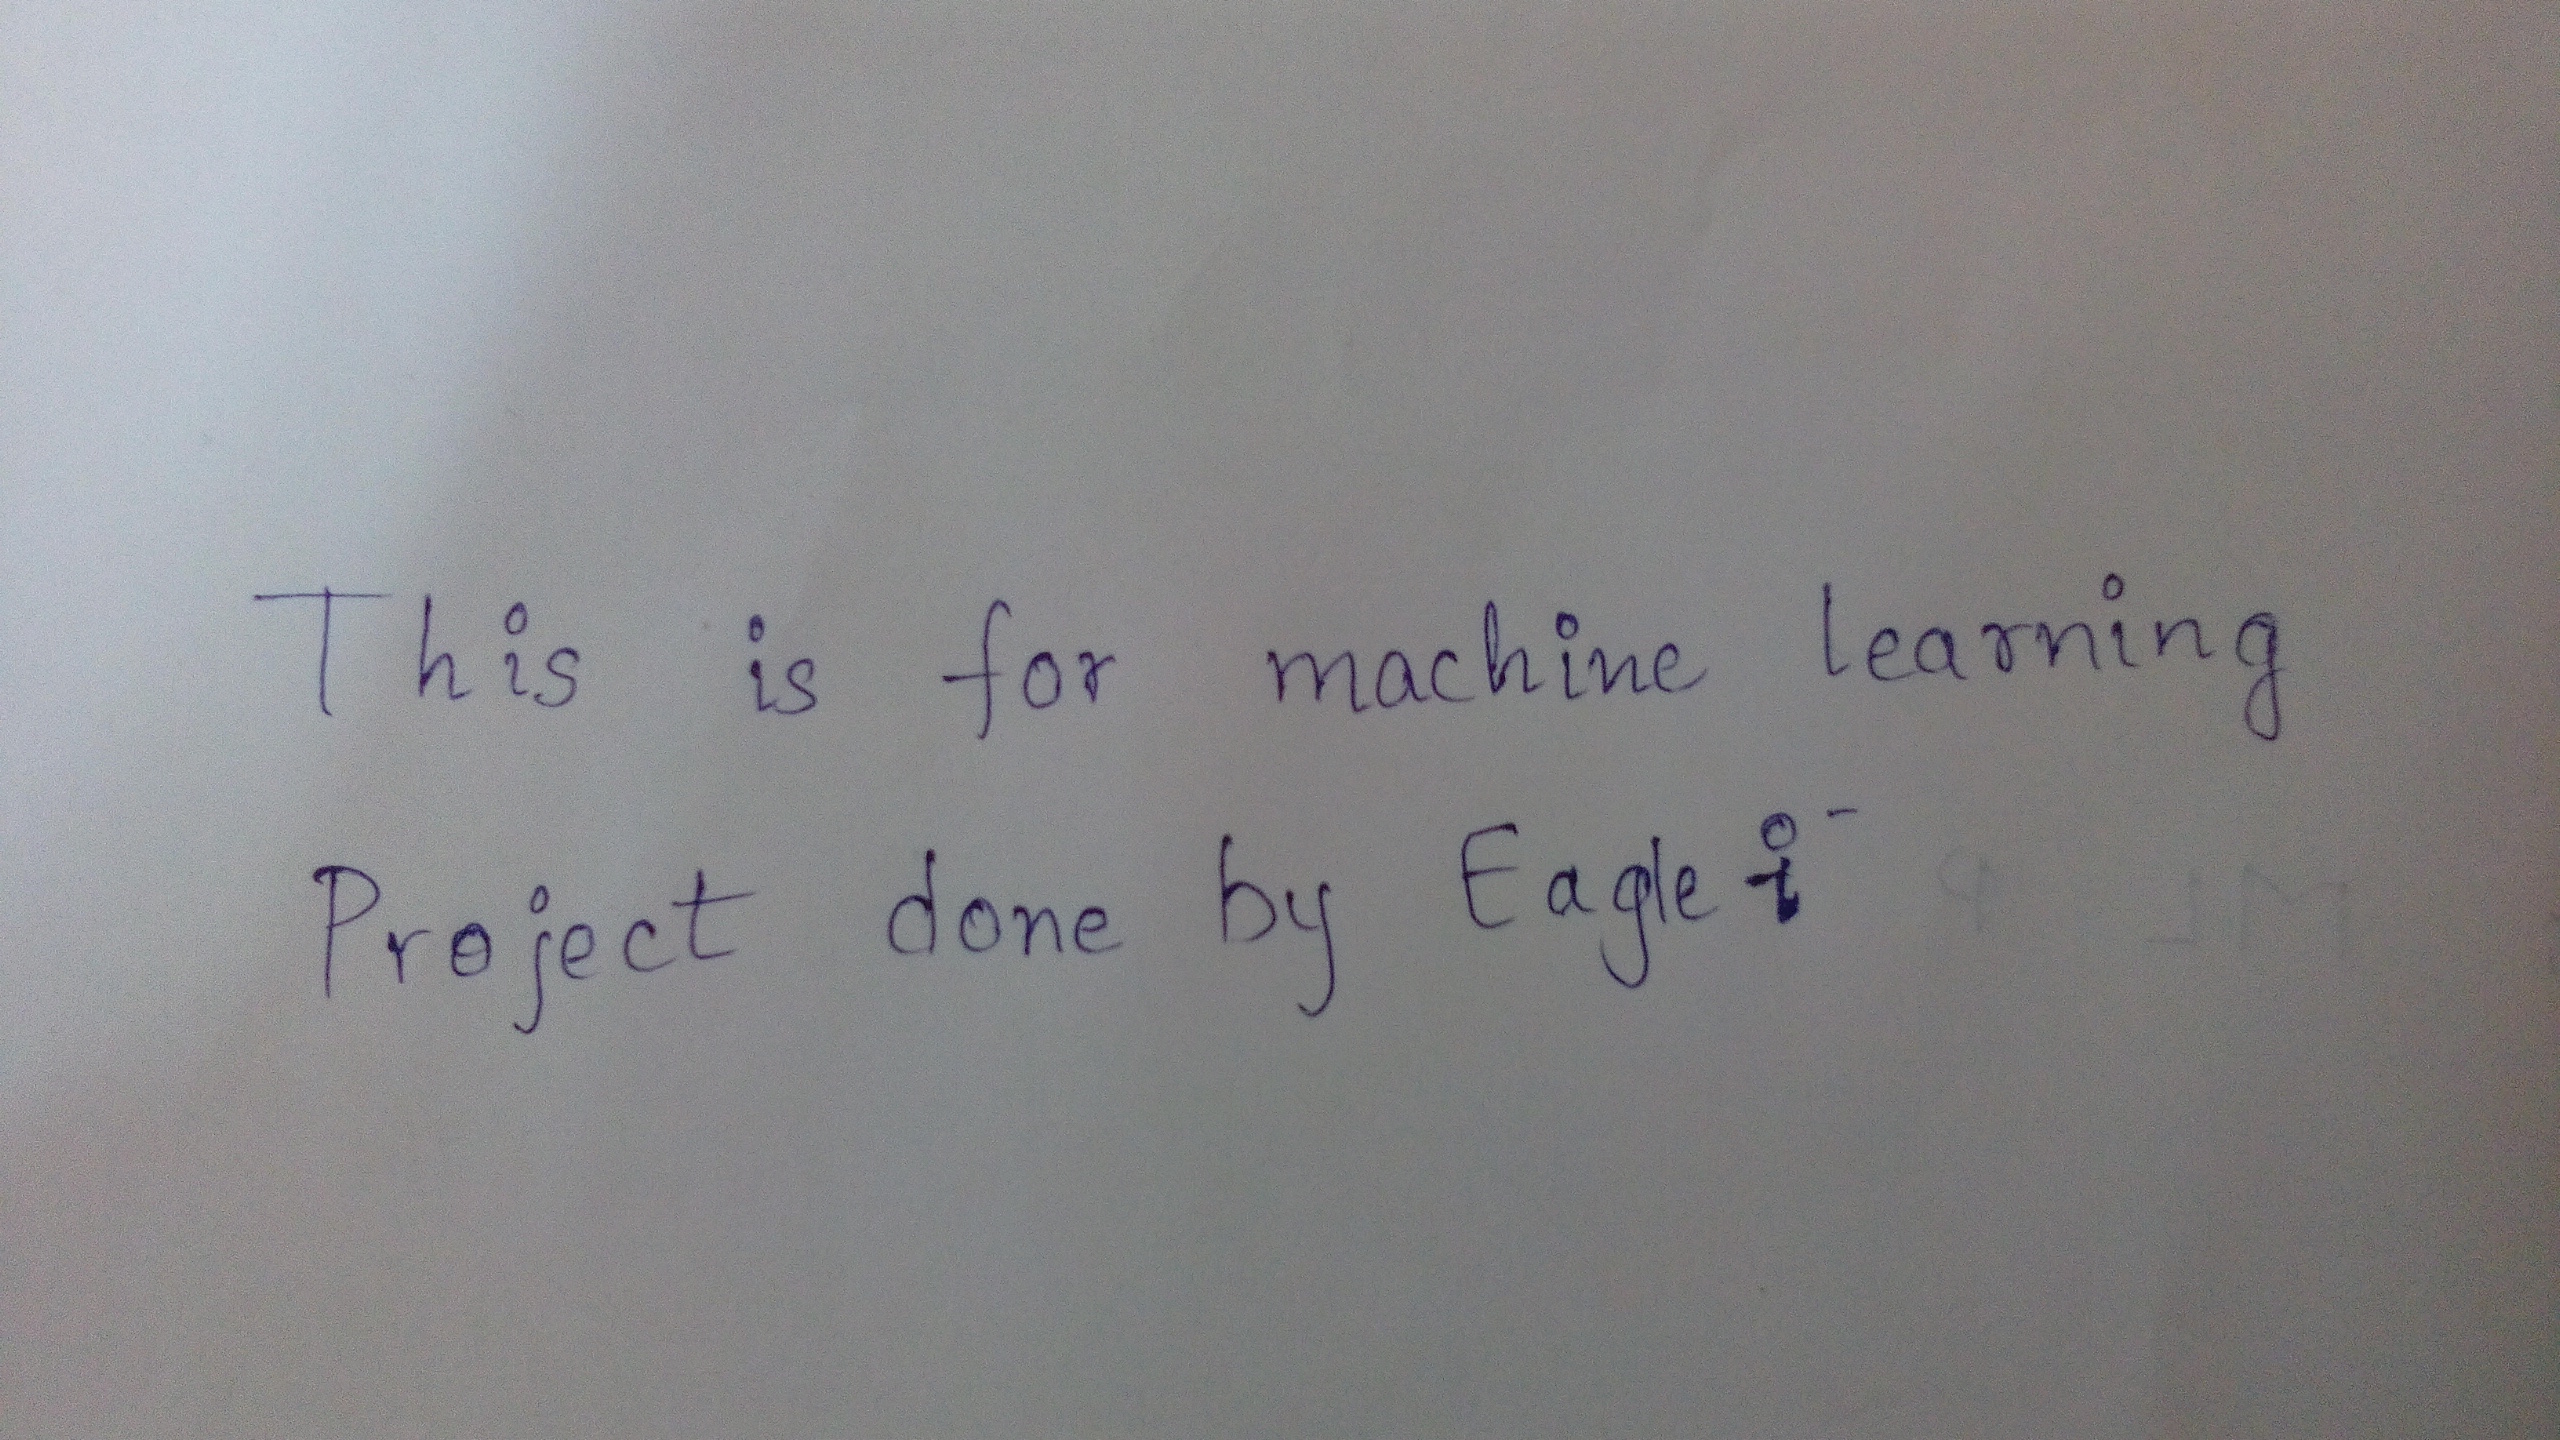 This is for machine learning
Project done by Eagle i